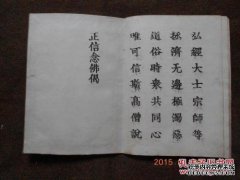 弘經大士宗師等
拯濟无邊極濁惡
道俗時衆共同心
唯可信斯高僧說
正信念佛偈
2015